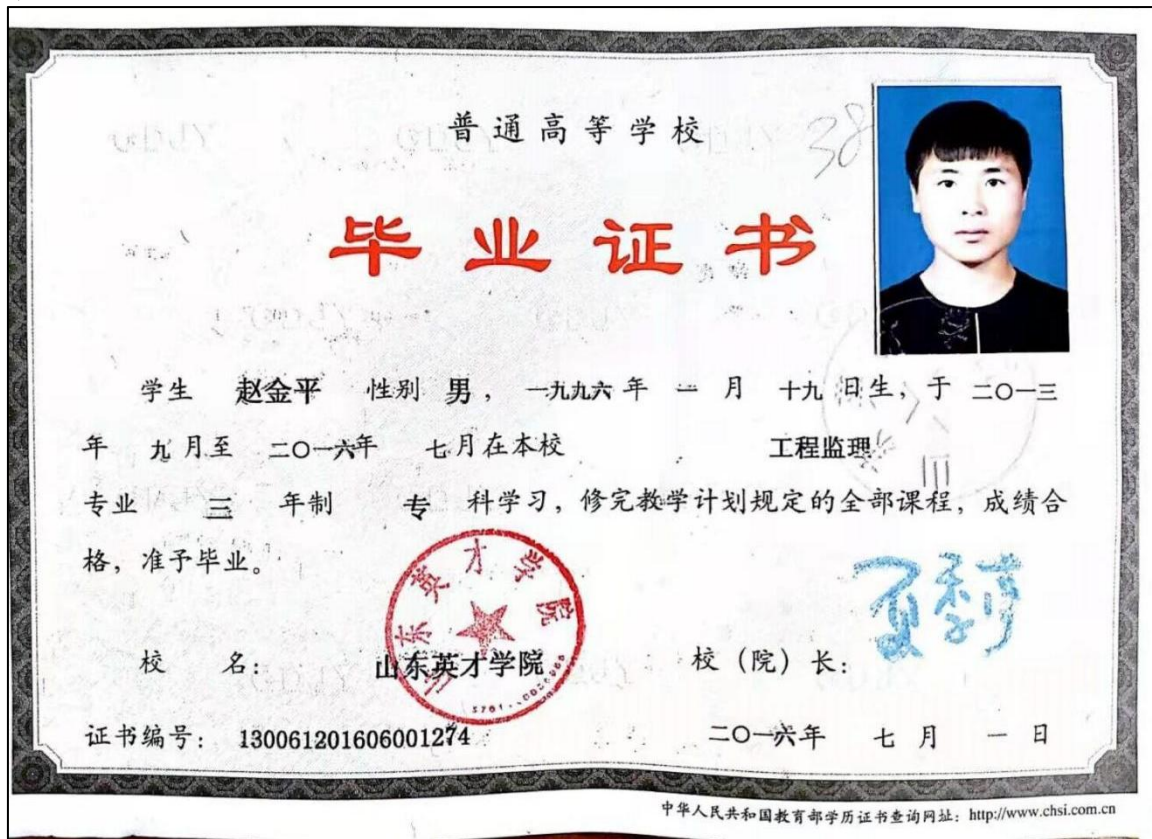 普通高等学校
38
毕业证书
学生 赵金平 性别 男，一九九六年 一 月 十九 日生，于 二〇一三
年 九 月至 二〇一六年 七月在本校 工程监理
专业 三 年制 专 科学习，修完教学计划规定的全部课程，成绩合
格，准予毕业。
山东英才学院
夏季亭
校 名： 山东英才学院 校（院）长：
证书编号： 130061201606001274 二〇一六年 七 月 一 日
中华人民共和国教育部学历证书查询网址：http://www.chsi.com.cn